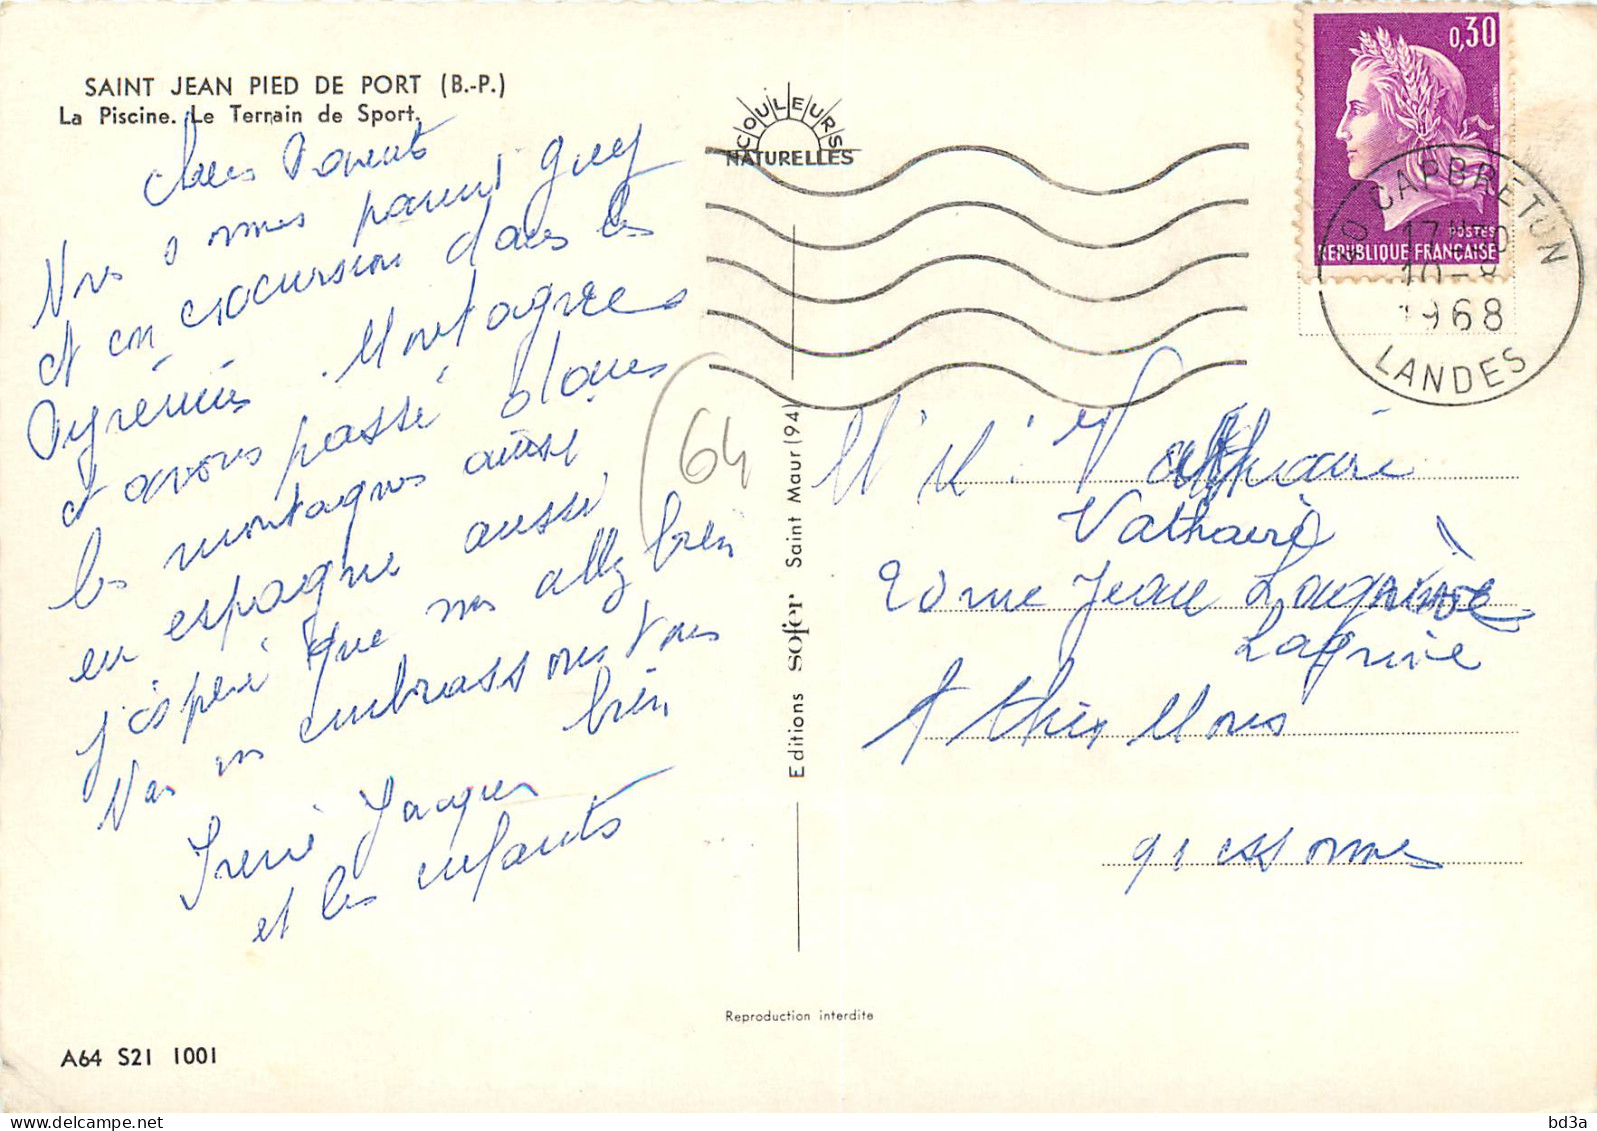 SAINT JEAN PIED DE PORT (B.-P.)
La Piscine. Le Terrain de Sport.
Chers Parents
Nos sommes parmi Guy
et en excursion dans les
Pyrénées Montagnes
et avons passé dans
les montagnes ainsi
en espagne aussi,
j'espère que vous allez bien
Nous vous embrassons tous
bien
Irène Jacques
et les enfants
64
COULEURS
NATURELLES
0,30
POSTES
REPUBLIQUE FRANÇAISE
40 CAPBRETON
17H
10-8
1968
LANDES
M. M. Vathaire
Vathaire
20 rue Jean Lagrive
Lagrive
Athis Mons
91 essonnes
Editions sofer Saint Maur (94)
Reproduction interdite
A64 S21 1001
bd3a